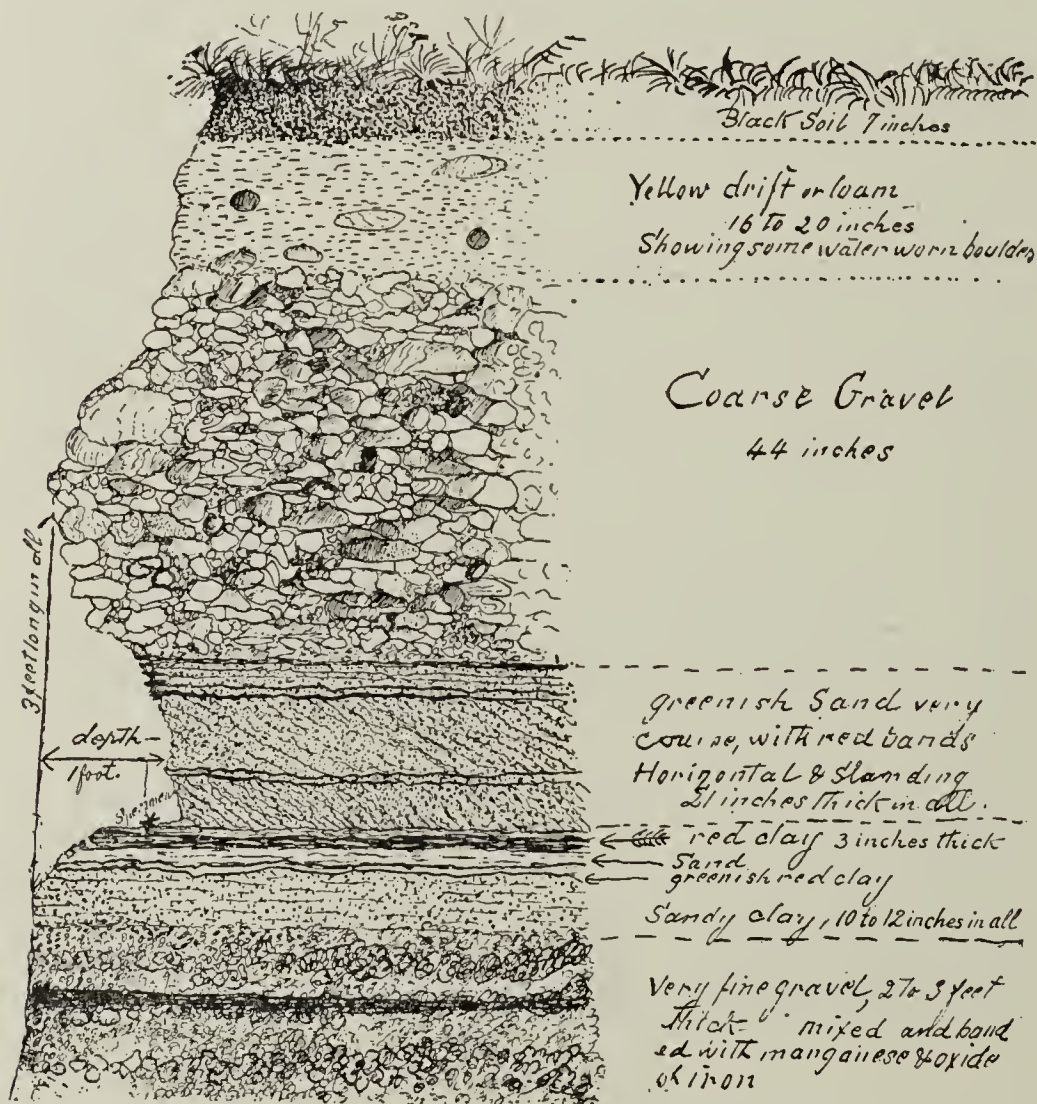 Black Soil 7 inches
Yellow drift or loam
16 to 20 inches
Showing some water worn boulders
Coarse Gravel
44 inches
3 feet long in all
greenish Sand very
course, with red bands
Horizontal & Slanding
21 inches thick in all.
depth -
1 foot.
Specimen
red clay 3 inches thick
Sand
greenish red clay
Sandy clay, 10 to 12 inches in all
Very fine gravel, 2 to 3 feet
thick - mixed and band
ed with manganese & oxide
of iron